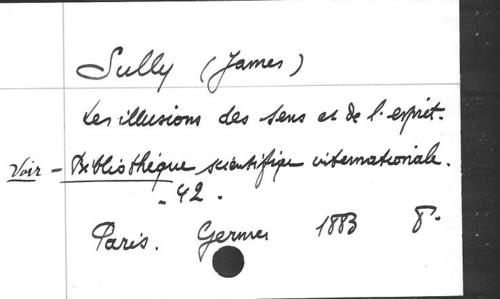 Sully (James)
Les illusions des sens et de l'esprit.
Voir - Bibliothéque scientifique internationale.
- 42.
Paris. Germer 1883 8°.